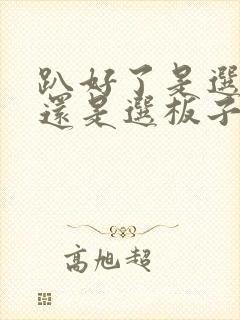 趴好了是選
還是選板子
高旭超